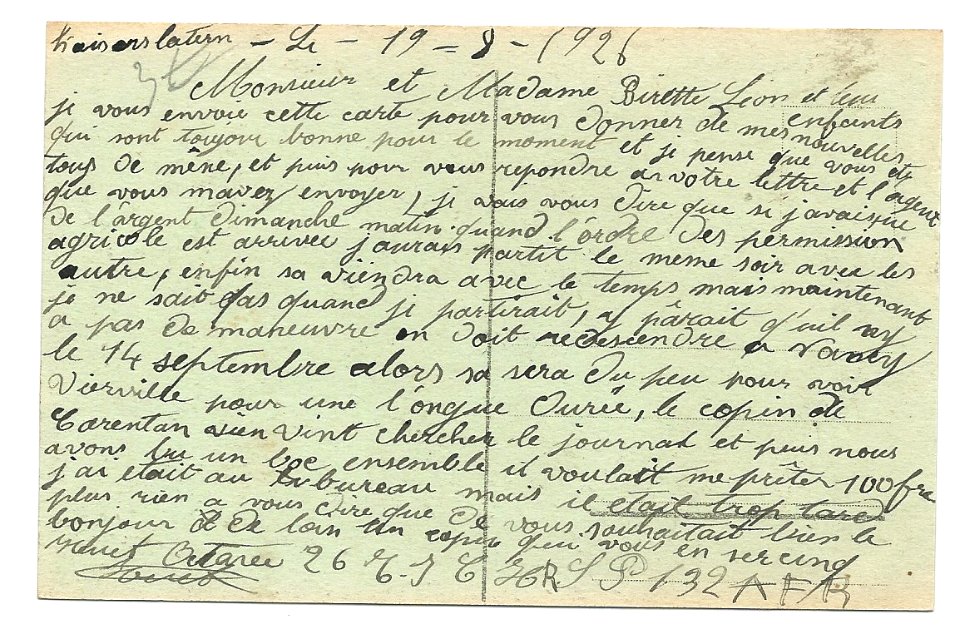 Kaiserslatern - Le - 19 - 8 - 1926
Monsieur et Madame Birette Léon et leur enfants
je vous envoie cette carte pour vous donner de mes nouvelles
qui sont toujour bonne pour le moment et je pense que vous de
tous de mène, et puis pour vous repondre a votre lettre et l'argent
que vous mavez envoyer, je vais vous dire que si j'avais eue
de l'argent Dimanche matin quand l'ordre des permission
agricole est arrivee j'aurais partit le meme soir avec les
autre, enfin sa viendra avec le temps mais maintenant
je ne sait pas quand je partirait, y parait q'uil ny
a pas de maneuvre on doit redesendre a Nancy
le 14 septembre alors sa sera du peu pour voir
Vierville pour une l'ongue Durée, le copin de
Carentan vien vint chercher le journal et puis nous
avons bu un boc ensemble il voulait me prêter 100 frs
j'ai etait au bureau mais il etait trop tard
plus rien a vous dire que de vous souhaitait bien le
bonjour de loin un copin qui vous en sercinq
Octave 26 R.I C H R S P 132 A F R